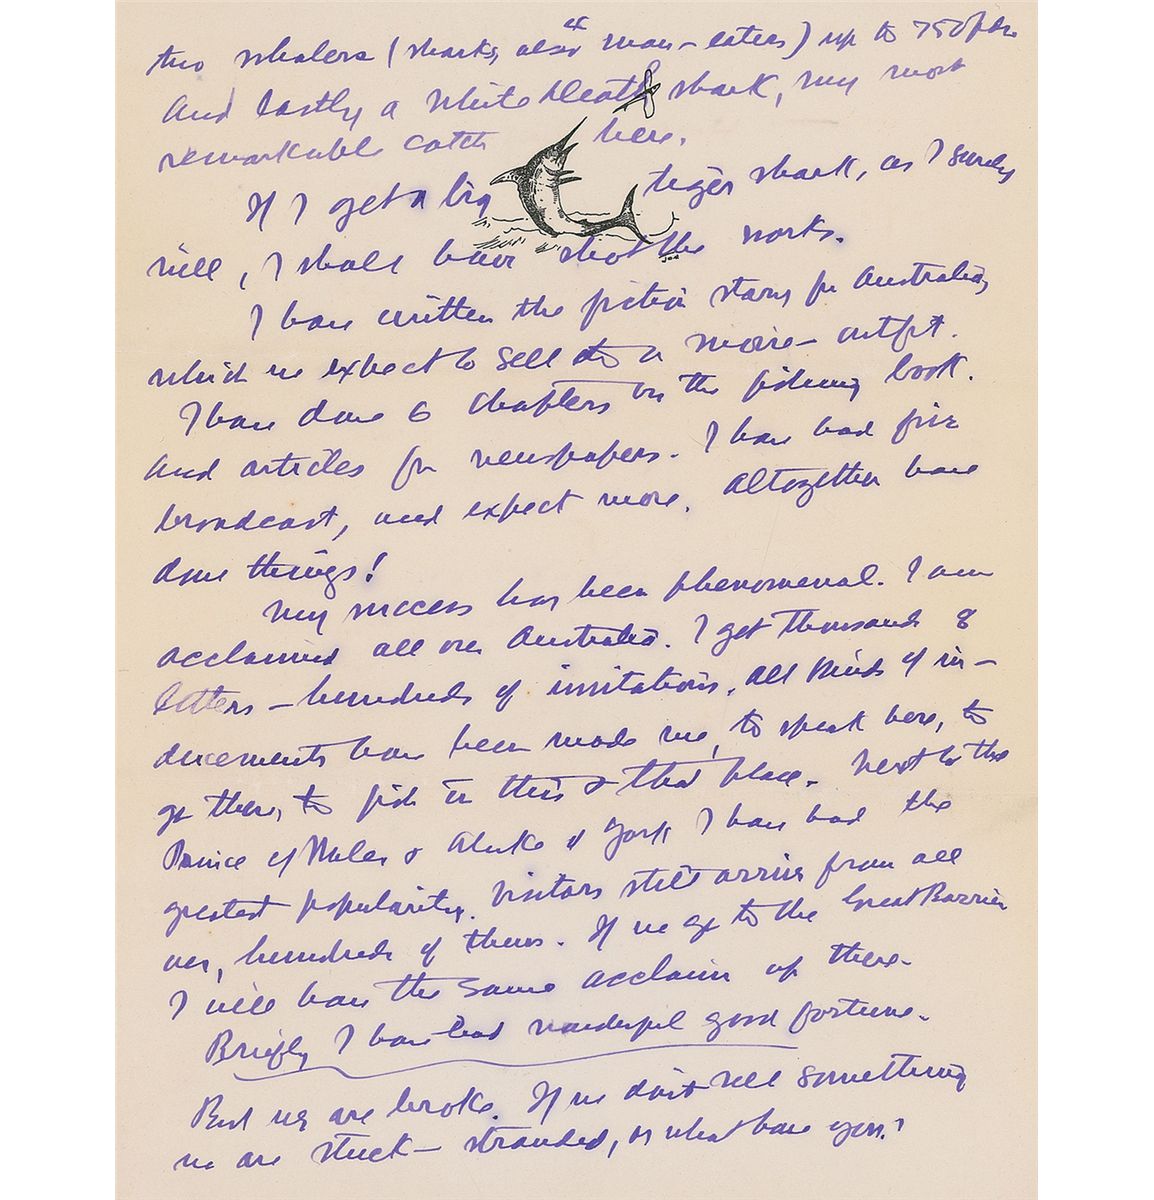 two whalers (sharks, also man-eaters) up to 750 lbs.
And lastly a White Death shark, my most
remarkable catch here.
If I get a big tiger shark, as I surely
will, I shall have shot the works.
I have written the fiction story for Australia,
which we expect to sell to a movie-outfit.
I have done 6 chapters on the fishing book.
And articles for newspapers. I have had five
broadcast, and expect more. Altogether have
done things!
My success has been phenomenal. I am
acclaimed all over Australia. I get thousands of
letters - hundreds of invitations. All kinds of in-
ducements have been made me, to speak here, to
go there, to fish in this & that place. Next to the
Prince of Wales & Duke of York I have had the
greatest popularity. Visitors still arrive from all
over, hundreds of them. If we go to the Great Barrier
I will have the same acclaim up there.
Briefly I have had wonderful good fortune.
But we are broke. If we don't sell something
we are stuck - stranded, or what have you?